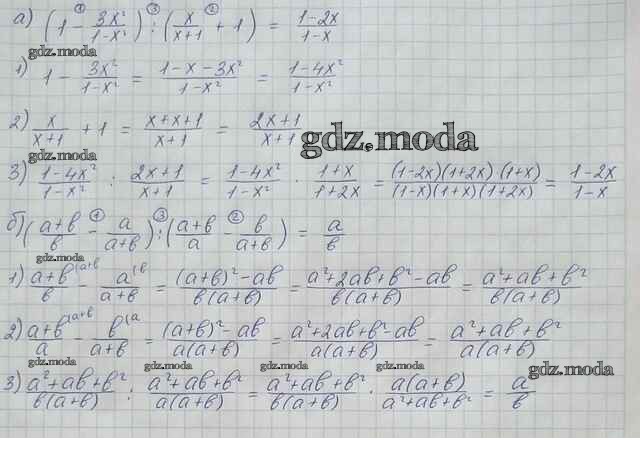 а) (1 - 3x²/(1-x²)) : (x/(x+1) + 1) = (1-2x)/(1-x)
① ③ ②
gdz.moda
1) 1 - 3x²/(1-x²) = (1-x-3x²)/(1-x²) = (1-4x²)/(1-x²)
2) x/(x+1) + 1 = (x+x+1)/(x+1) = (2x+1)/(x+1)
gdz.moda
3) (1-4x²)/(1-x²) : (2x+1)/(x+1) = (1-4x²)/(1-x²) · (1+x)/(1+2x) = ((1-2x)(1+2x)·(1+x))/((1-x)(1+x)(1+2x)) = (1-2x)/(1-x)
gdz.moda
б) ((a+b)/b - a/(a+b)) : ((a+b)/a - b/(a+b)) = a/b
① ③ ②
gdz.moda
1) (a+b)/b (a+b - a/(a+b) (b = ((a+b)²-ab)/(b(a+b)) = (a²+2ab+b²-ab)/(b(a+b)) = (a²+ab+b²)/(b(a+b))
2) (a+b)/a (a+b - b/(a+b) (a = ((a+b)²-ab)/(a(a+b)) = (a²+2ab+b²-ab)/(a(a+b)) = (a²+ab+b²)/(a(a+b))
gdz.moda gdz.moda gdz.moda gdz.moda
3) (a²+ab+b²)/(b(a+b)) : (a²+ab+b²)/(a(a+b)) = (a²+ab+b²)/(b(a+b)) · (a(a+b))/(a²+ab+b²) = a/b